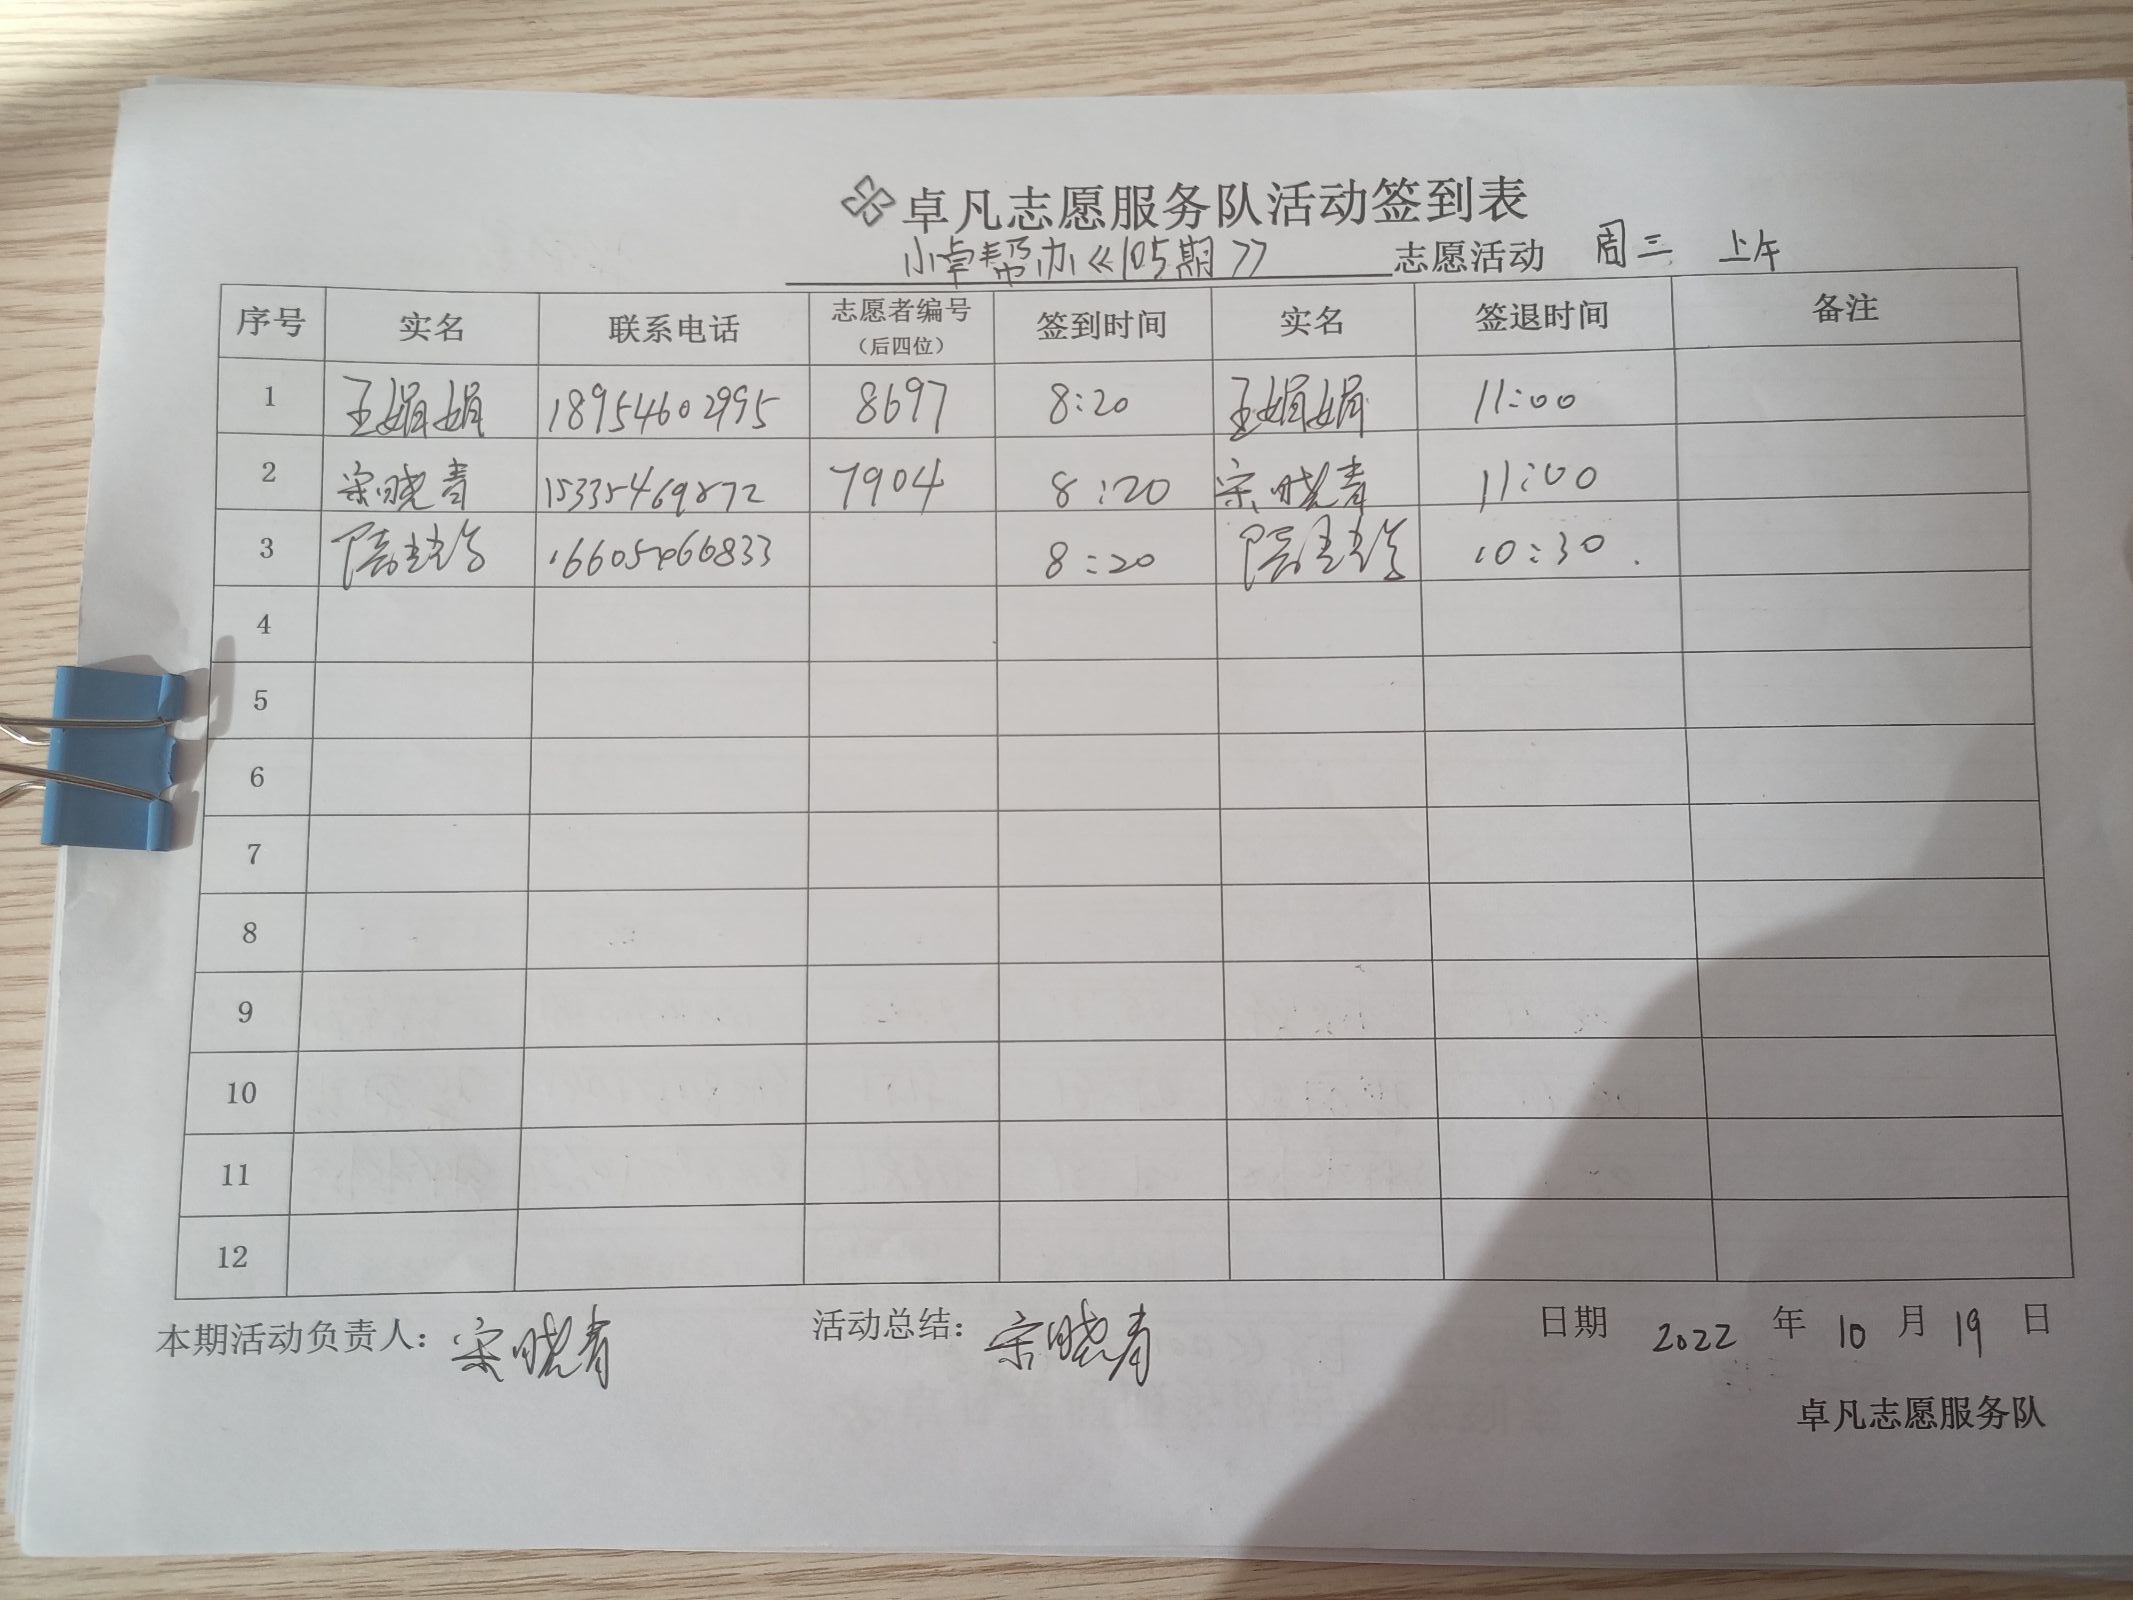 卓凡志愿服务队活动签到表
小卓帮办《105期》 志愿活动 周三 上午
序号 实名 联系电话 志愿者编号（后四位） 签到时间 实名 签退时间 备注
1 王娟娟 18954602995 8697 8:20 王娟娟 11:00
2 宋晓青 15335469872 7904 8:20 宋晓青 11:00
3 16605466833 8:20 10:30
4
5
6
7
8
9
10
11
12
本期活动负责人：宋晓青 活动总结：宋晓青 日期 2022 年 10 月 19 日
卓凡志愿服务队